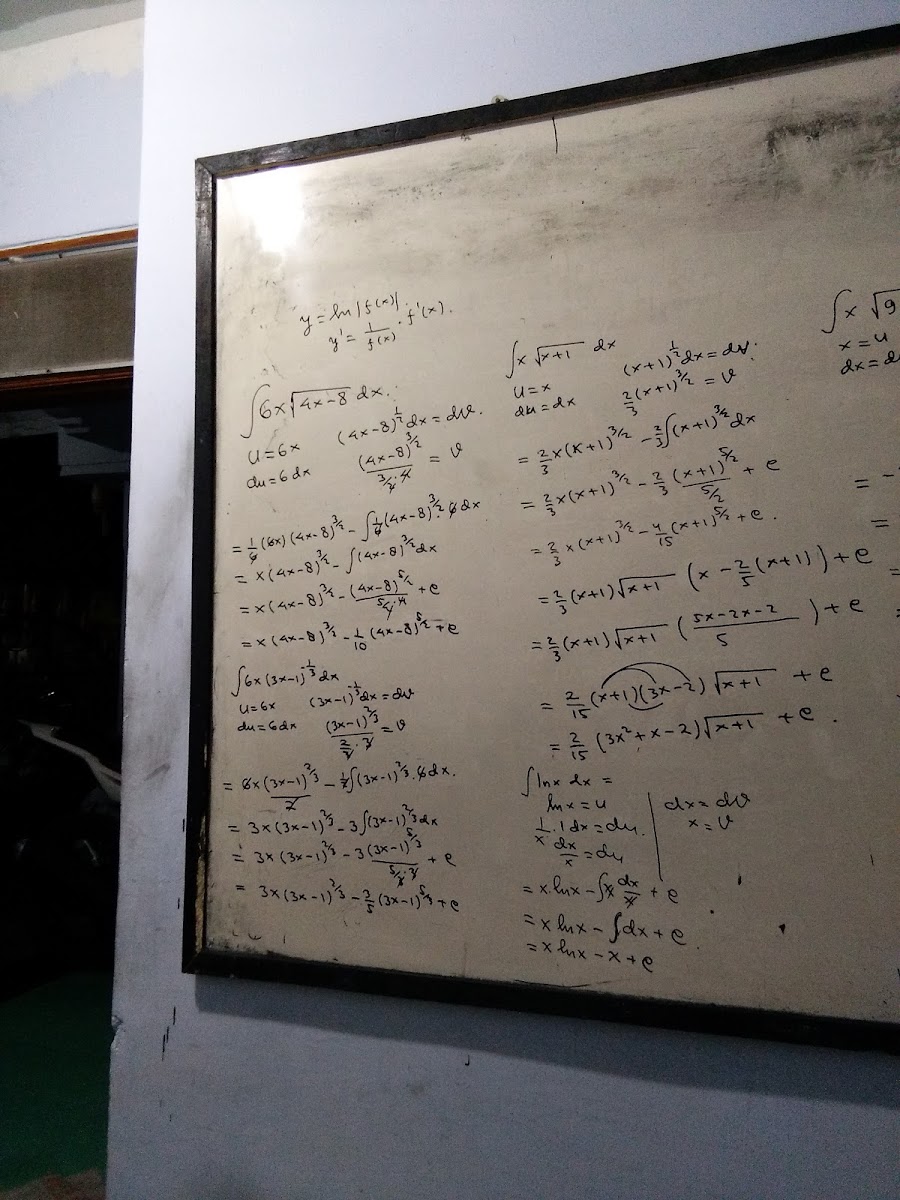 y = ln |f(x)|.
y' = 1/f(x) · f'(x).
∫6x√(4x-8) dx.
u = 6x (4x-8)^(1/2) dx = dv.
du = 6 dx (4x-8)^(3/2) / (3/2 · 4) = v
= 1/6 (6x) (4x-8)^(3/2) - ∫ 1/6 (4x-8)^(3/2) · 6 dx
= x (4x-8)^(3/2) - ∫ (4x-8)^(3/2) dx
= x (4x-8)^(3/2) - (4x-8)^(5/2) / (5/2 · 4) + c
= x (4x-8)^(3/2) - 1/10 (4x-8)^(5/2) + c
∫6x (3x-1)^(-1/3) dx
u = 6x (3x-1)^(-1/3) dx = dv
du = 6 dx (3x-1)^(2/3) / (2/3 · 3) = v
= 6x (3x-1)^(2/3) / 2 - 1/2 ∫ (3x-1)^(2/3) · 6 dx.
= 3x (3x-1)^(2/3) - 3 ∫ (3x-1)^(2/3) dx
= 3x (3x-1)^(2/3) - 3 (3x-1)^(5/3) / (5/3 · 3) + c
= 3x (3x-1)^(2/3) - 3/5 (3x-1)^(5/3) + c
∫x √(x+1) dx
u = x (x+1)^(1/2) dx = dv.
du = dx 2/3 (x+1)^(3/2) = v
= 2/3 x (x+1)^(3/2) - 2/3 ∫ (x+1)^(3/2) dx
= 2/3 x (x+1)^(3/2) - 2/3 (x+1)^(5/2) / (5/2) + c
= 2/3 x (x+1)^(3/2) - 4/15 (x+1)^(5/2) + c.
= 2/3 (x+1) √(x+1) (x - 2/5 (x+1)) + c
= 2/3 (x+1) √(x+1) ((5x-2x-2) / 5) + c
= 2/15 (x+1)(3x-2) √(x+1) + c
= 2/15 (3x² + x - 2) √(x+1) + c.
∫ln x dx =
ln x = u dx = dv
1/x · 1 dx = du. x = v
dx/x = du
= x · ln x - ∫ x dx/x + c
= x ln x - ∫ dx + c.
= x ln x - x + c
∫x √9
x = u
dx = d
= -
=
=
=